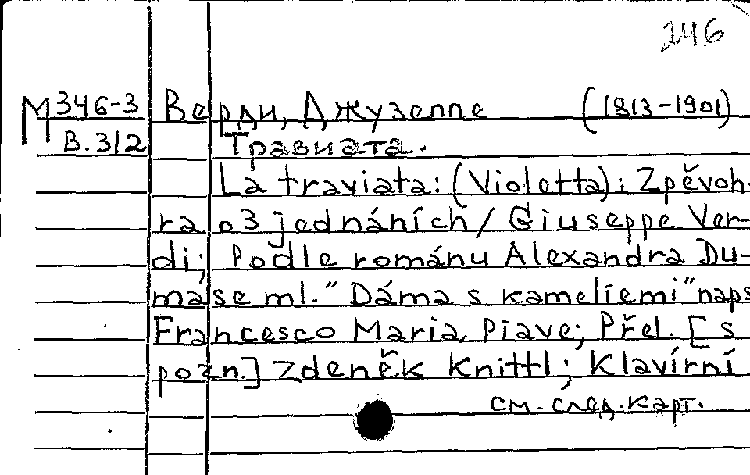 246
М 346-3 Верди, Джузеппе (1813-1901)
В.312 Травиата.
La traviata: (Violetta): Zpěvoh-
ra o 3 jednáních / Giuseppe Ver-
di; Podle románu Alexandra Du-
mase ml. "Dáma s kameliemi" naps
Francesco Maria Piave; Přel. [s
pozn.] Zdeněk Knittl; Klavírní
см. след. карт.